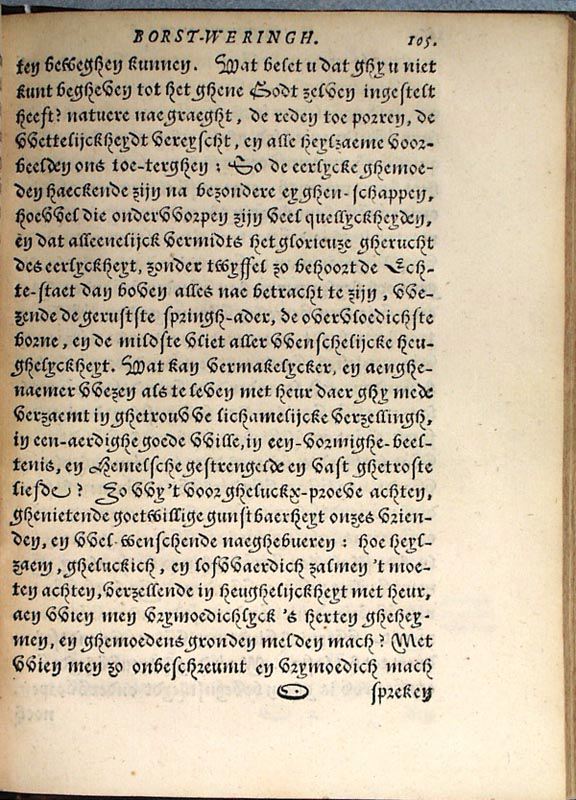 BORST-WERINGH. 105.
ten beweghen kunnen. Wat belet u dat ghy u niet
kunt begheven tot het ghene Godt zelven ingestelt
heeft? natuere naegraeght, de reden toe porren, de
VVettelijckheydt vereyscht, en alle heylzaeme voor-
beelden ons toe-terghen; So de eerlycke ghemoe-
den haeckende zijn na bezondere eyghen-schappen,
hoevvel die ondervvorpen zijn veel quellyckheyden,
en dat alleenelijck vermidts het glorieuze gherucht
des eerlyckheyt, zonder twyffel zo behoort de Ech-
te-staet dan boven alles nae betracht te zijn, vve-
zende de gerustste springh-ader, de overvloedichste
borne, en de mildste vliet aller vvenschelijcke heu-
ghelyckheyt. Wat kan vermakelycker, en aenghe-
naemer vvezen als te leven met heur daer ghy mede
verzaemt in ghetrouvve lichamelijcke verzellingh,
in een-aerdighe goede vville, in een-vormighe-beel-
tenis, en Hemelsche gestrengelde en vast ghetroste
liefde? Zo vvy 't voor gheluckx-proeve achten,
ghenietende goetwillige gunstbaerheyt onzes vrien-
den, en vvel-wenschende naeghebueren: hoe heyl-
zaem, gheluckich, en lofvvaerdich zalmen 't moe-
ten achten, verzellende in heughelijckheyt met heur,
aen vvien men vrymoedichlyck 's herten ghehey-
men, en ghemoedens gronden melden mach? Met
vvien men zo onbeschreumt en vrymoedich mach
spreken